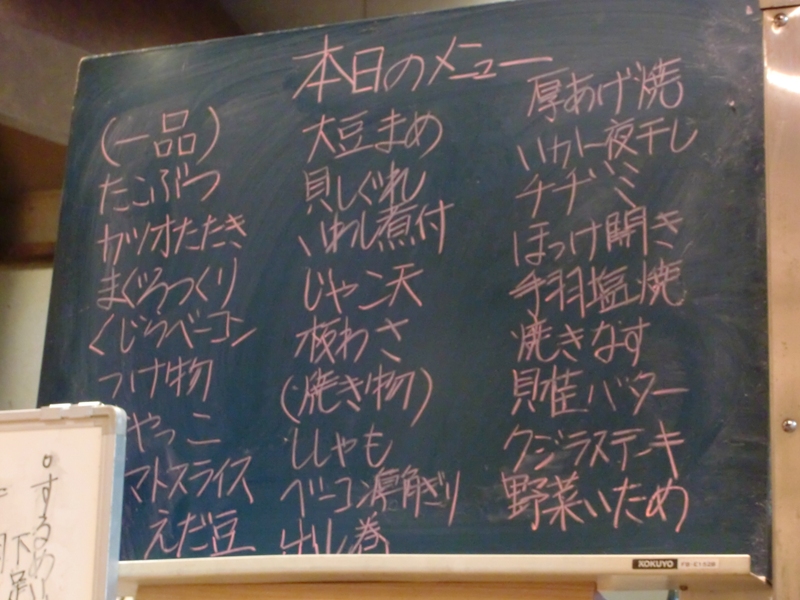 本日のメニュー
(一品)
たこぶつ
カツオたたき
まぐろつくり
くじらベーコン
つけ物
やっこ
マトスライス
えだ豆
大豆まめ
貝しぐれ
いわし煮付
じゃこ天
板わさ
(焼き物)
ししゃも
ベーコン厚角ぎり
出し巻
厚あげ焼
いか一夜干し
チヂミ
ほっけ開き
手羽塩焼
焼きなす
貝柱バター
クジラステーキ
野菜いため
KOKUYO
するめ
下足